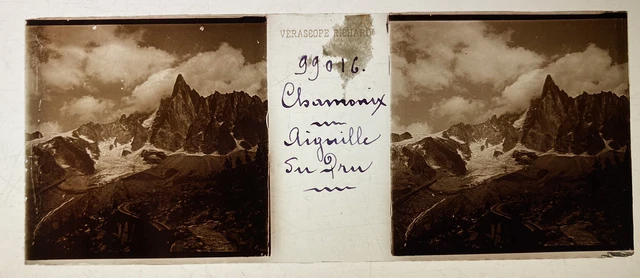 VERASCOPE RICHARD
99016.
Chamonix
Aiguille
Du Dru